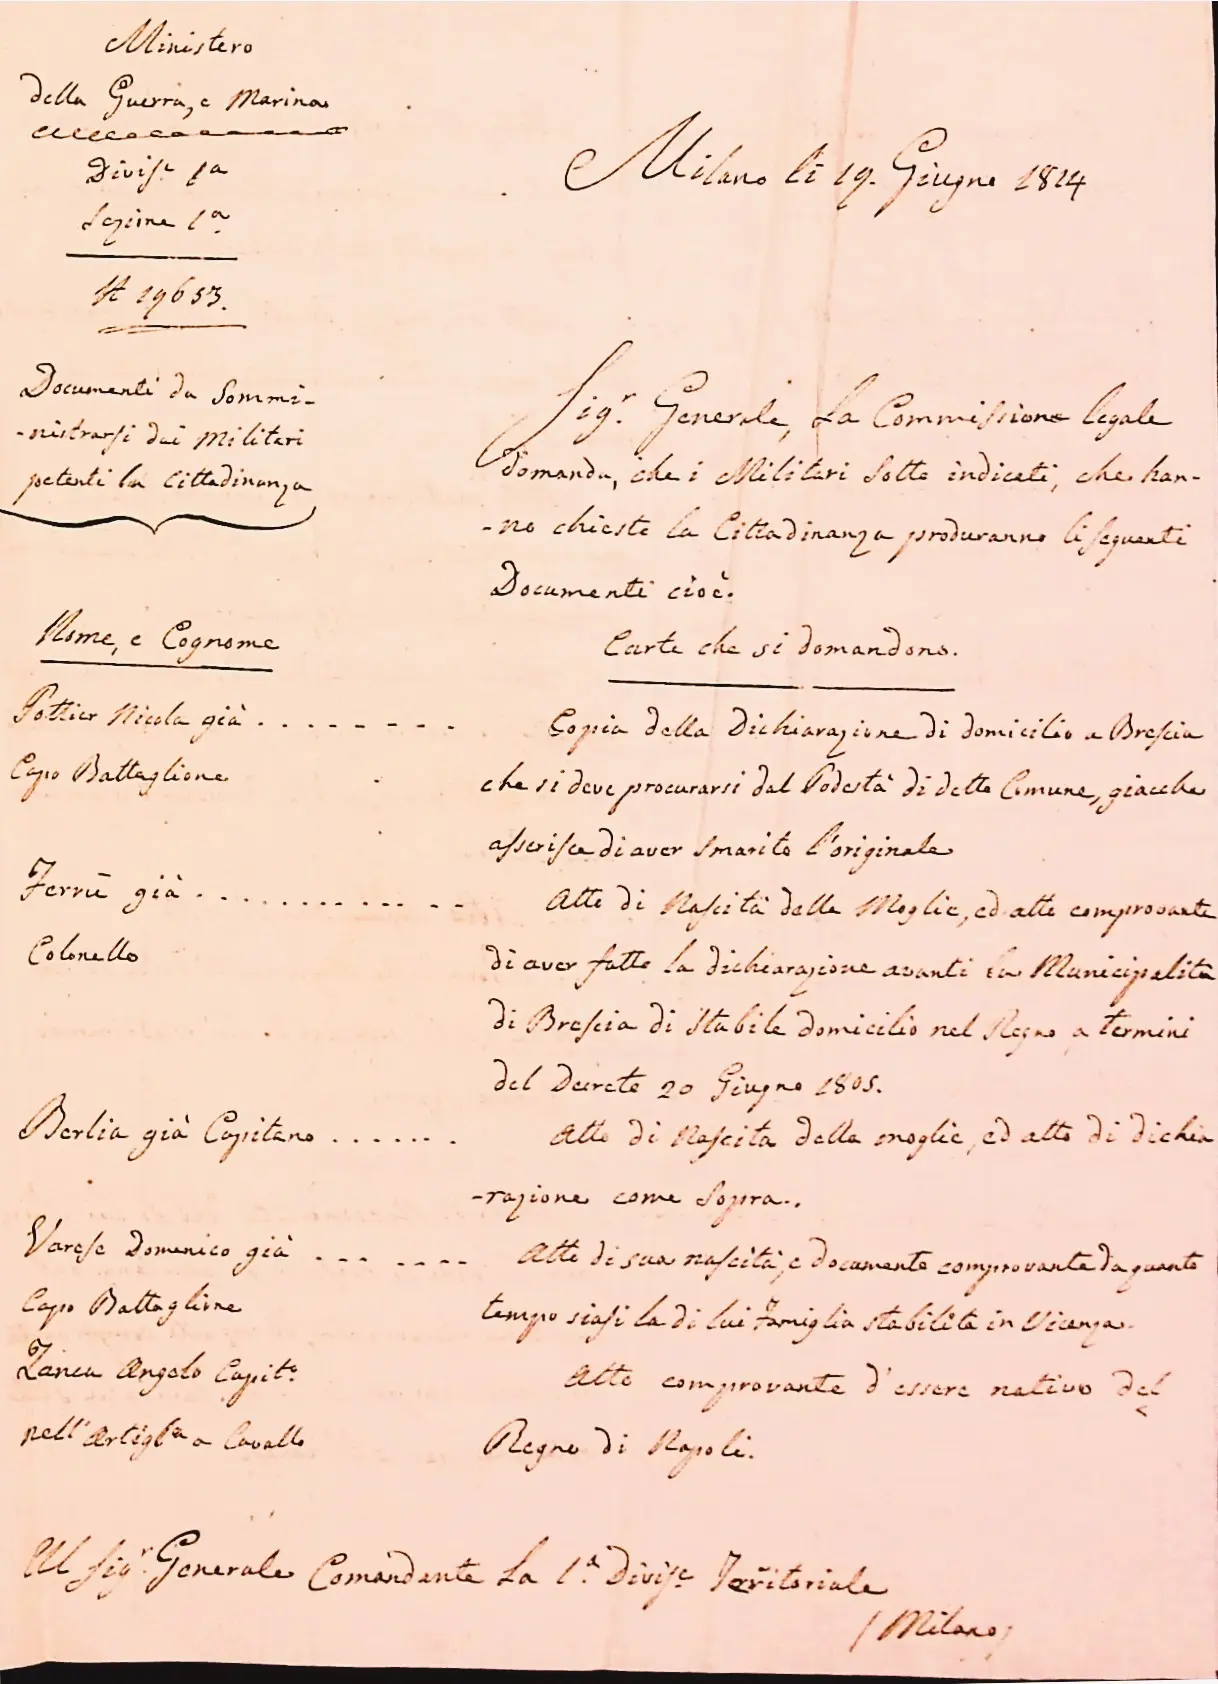 Ministero
della Guerra, e Marina
Divis.e 1a
Sezione 1.a
N 19653.
Documenti da Sommi-
-nistrarsi dai Militari
petenti la Cittadinanza
Milano li 19. Giugno 1814
Sig.r Generale, La Commissione legale
domanda, che i Militari Sotto indicati, che han-
-no chiesto la Cittadinanza produranno li seguenti
Documenti cioè.
Nome, e Cognome
Carte che si domandono.
Pottier Nicola già . . . . . . . .
Capo Battaglione
Copia della Dichiarazione di domicilio a Brescia
che si deve procurarsi dal Podestà di detto Comune, giacche
asserisce di aver Smarito l'originale
già . . . . . . . . . . . .
Colonello
Atto di Nascita della Moglie, ed atto comprovante
di aver fatto la dichiarazione avanti la Municipalità
di Brescia di Stabile domicilio nel Regno a termini
del Decreto 20 Giugno 1805.
Berlia già Capitano . . . . . . .
Atto di Nascita della moglie, ed atto di dichia
-razione come Sopra.
Varese Domenico già . . . . . . .
Capo Battaglione
Atto di sua nascità, e documento comprovante da quanto
tempo siasi la di lui Famiglia stabilita in Vicenza.
Angelo Capit.o
nell'Artigl.a a Cavallo
Atto comprovante d'essere nativo del
Regno di Napoli.
Al Sig.r Generale Comandante La 1.a Divis.e Territoriale
(Milano)